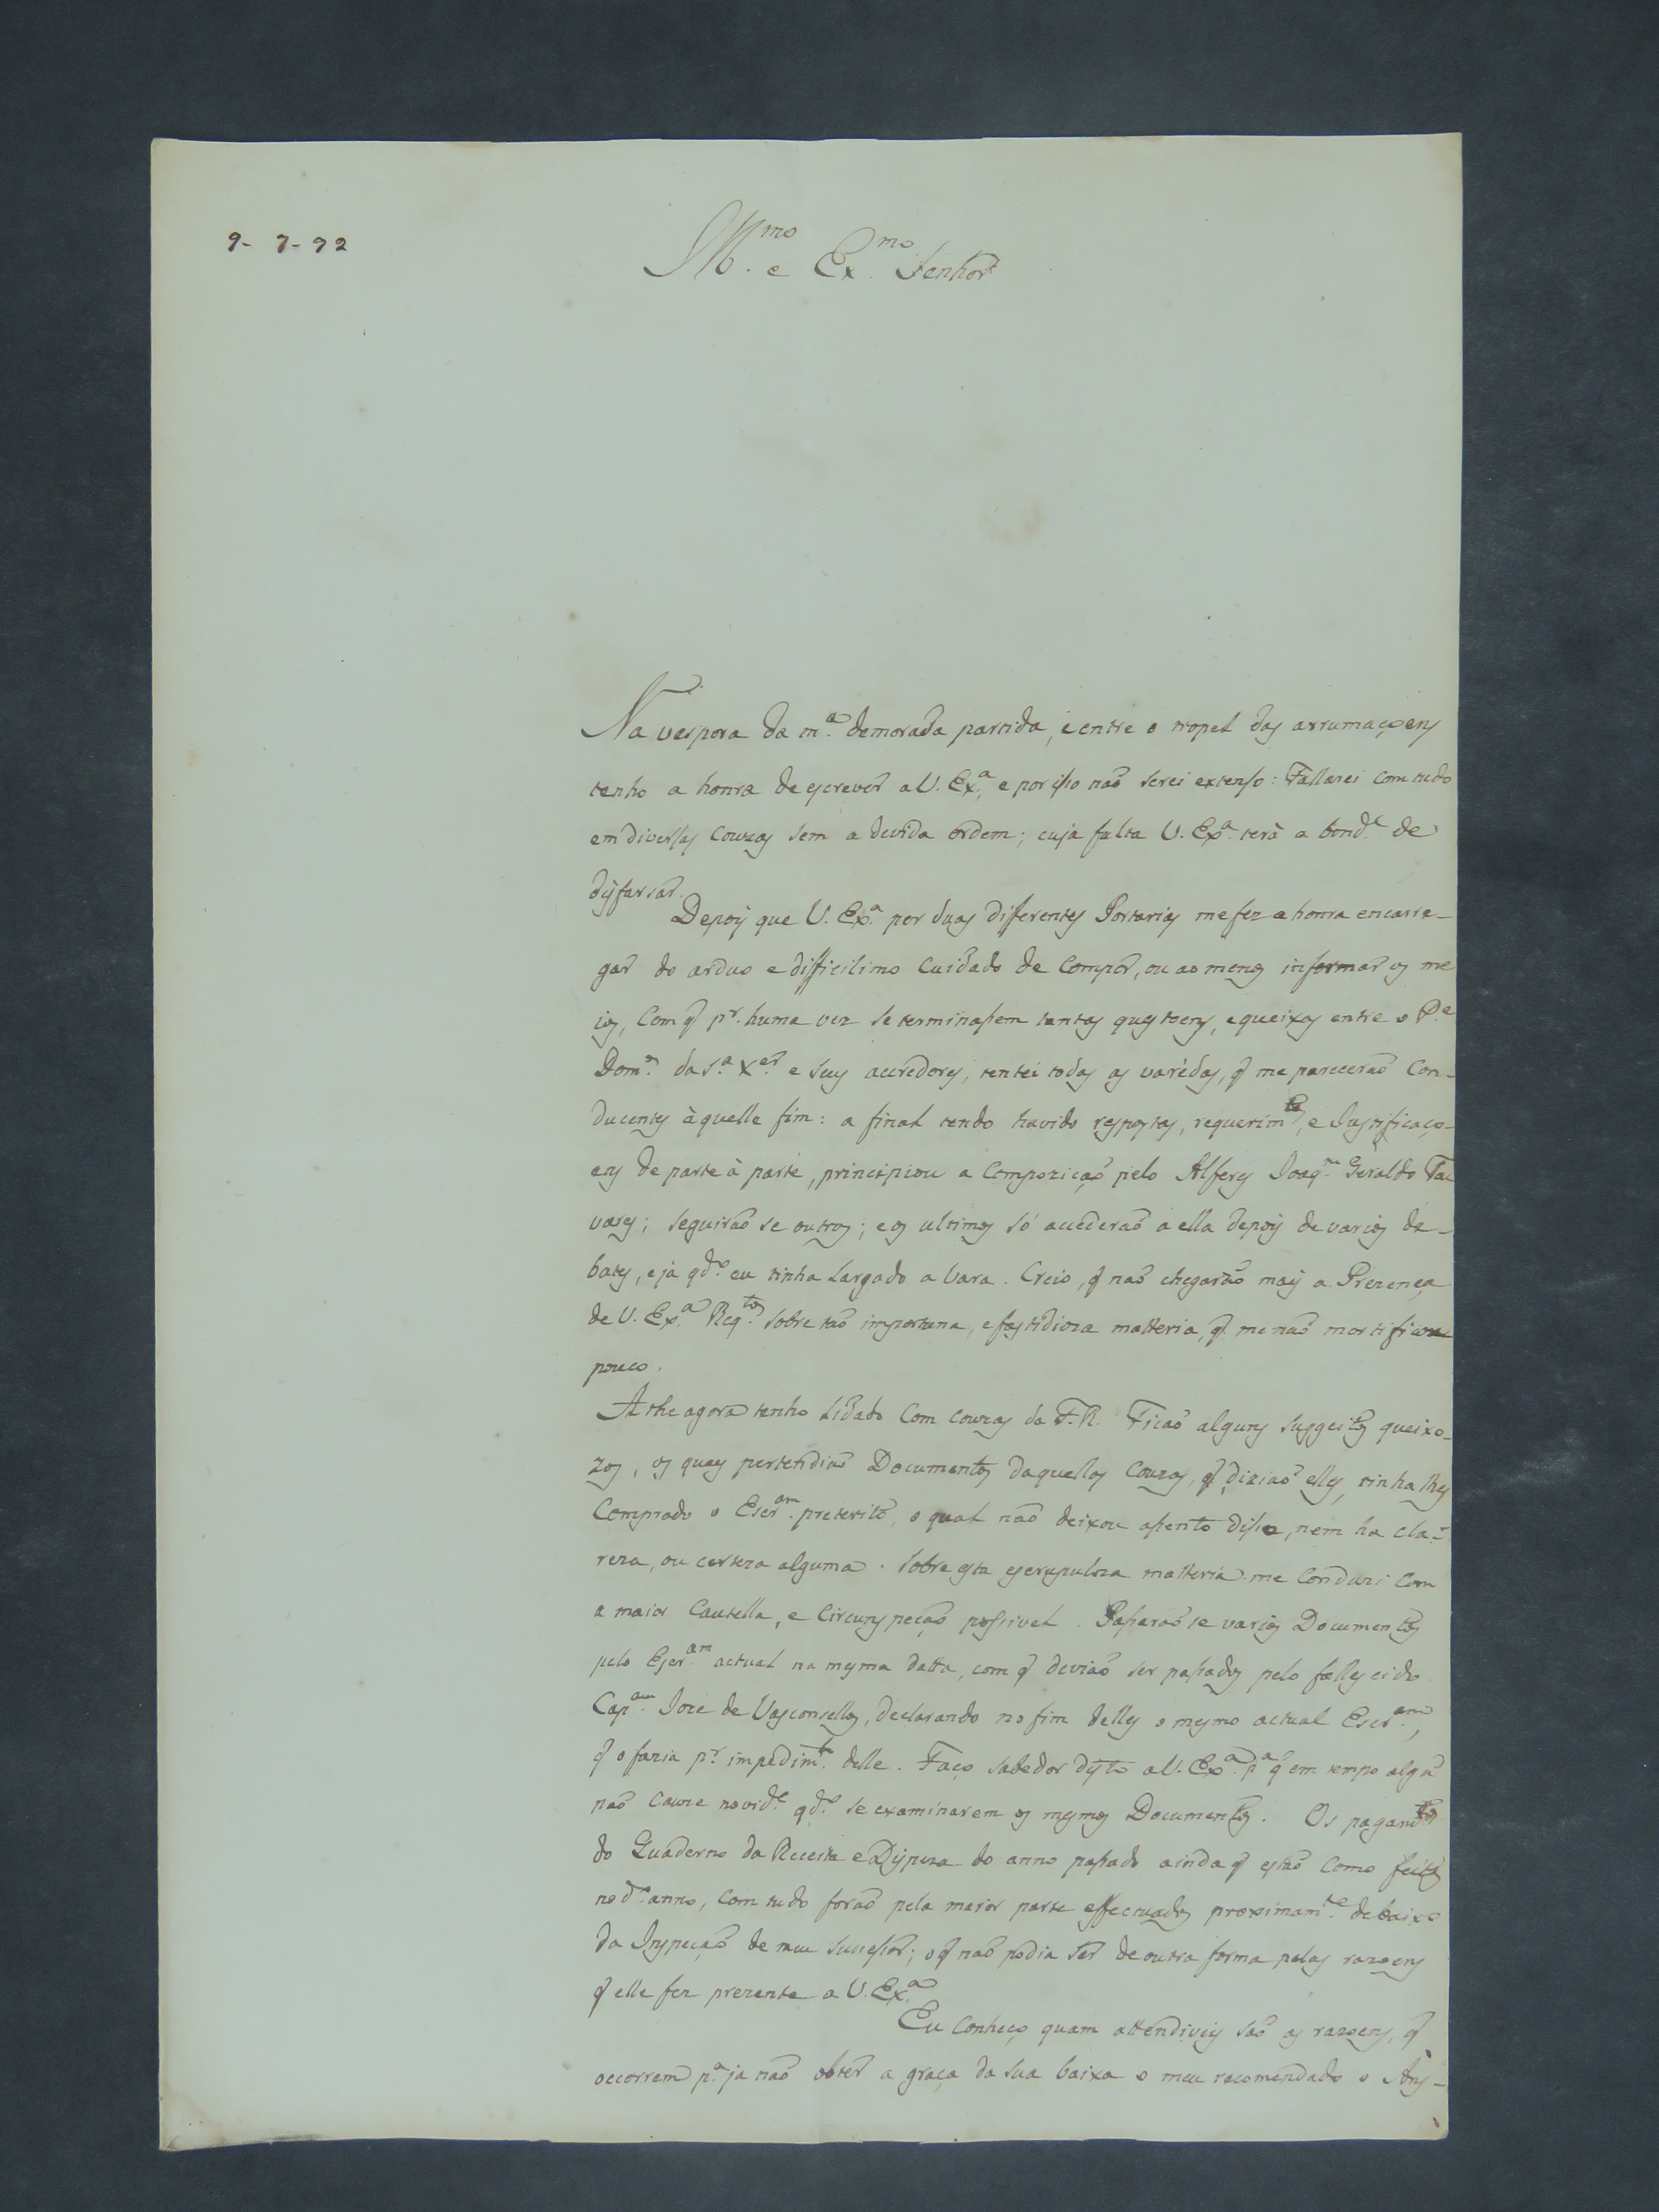 9-7-92
Ill.mo e Ex.mo Senhor
Na vespora da m.a demorada partida, e entre o tropel das arrumaçoens
tenho a honra de escrever a V. Ex.a, e por isso naõ serei extenso: Fallarei com tudo
em diversas couzas sem a devida ordem; cuja falta V. Ex.a terà a bond.e de
disfarsar.
Depois que V. Ex.a por duas differentes Portarias me fez a honra encarre-
gar do arduo e difficilimo cuidado de compor, ou ao menos informar os me
ios, com q pr. huma vez se terminassem tantas questoens, e queixas entre o P.e
Dom.os da S.a X.er e seus acredores, tentei todas as varédas, q me pareceraõ con-
ducentes àquelle fim: a final tendo havido respostas, requerim.tos, e Justificaço-
ens de parte à parte, principiou a compoziçaõ pelo Alferes Joaq.m Geraldo Ta
vares; seguiraõ se outros; e os ultimos só accederaõ a ella depois de varios de-
bates, e já qd.o eu tinha largado a vara. Creio, q naõ chegaraõ mais a Prezença
de V. Ex.a Req.tos sobre taõ importuna, e fastidioza matteria, q me naõ mortificou
pouco.
Athe agora tenho lidado com couzas da F. R. Ficaõ alguns suggeitos queixo-
zos, os quaes pertendiaõ Documentos daquellas couzas, q, diziaõ elles, tinha lhes
comprado o Escr.am preterito, o qual naõ deixou assento disso, nem ha cla-
reza, ou certeza alguma. Sobre esta escrupuloza matteria me conduzi com
a maior cautella, e circunspeçaõ possivel. Passaraõ se varios Documentos
pelo Escr.am actual na mesma datta, com q deviaõ ser passados pelo fallescido
Cap.am Joze de Vasconsellos, declarando no fim delles o mesmo actual Escr.am,
q o fazia pr. impedim.to delle. Faço sabedor disto a V. Ex.a p.a q em tempo algũ
naõ cauze novid.e qd.o se examinarem os mesmos Documentos. Os pagam.tos
do Quaderno da Receita e Dispeza do anno passado ainda q estaõ como feitos
no d.o anno, com tudo foraõ pela maior parte effectuados proximam.te debaixo
da Inspeçaõ de meu sucessor; o q naõ podia ser de outra forma pelas razoens
q elle fez prezente a V. Ex.a
Eu conheço quam attendiveis saõ as razoens, q
occorrem p.a ja naõ obter a graça da sua baixa o meu recomendado o Ans-